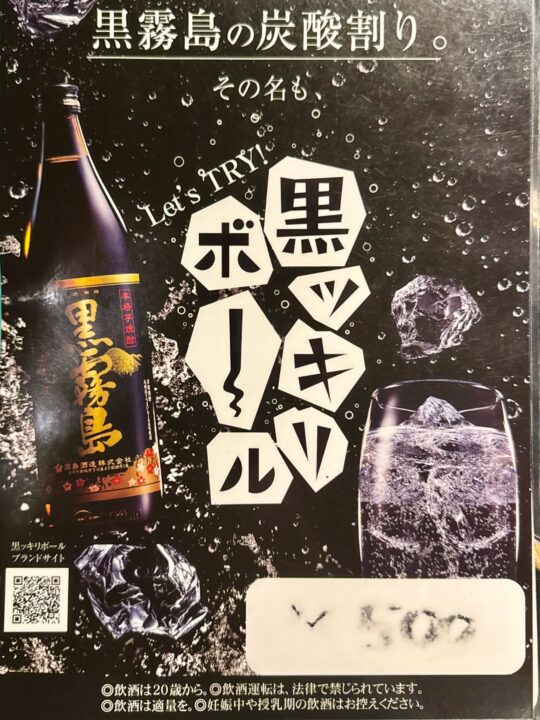 黒霧島の炭酸割り。
その名も、
Let's TRY!
黒ッキリ
ボール
本格芋焼酎
黒霧島
霧島酒造株式会社
黒ッキリボール
ブランドサイト
¥500
◎飲酒は20歳から。◎飲酒運転は、法律で禁じられています。
◎飲酒は適量を。◎妊娠中や授乳期の飲酒はお控えください。